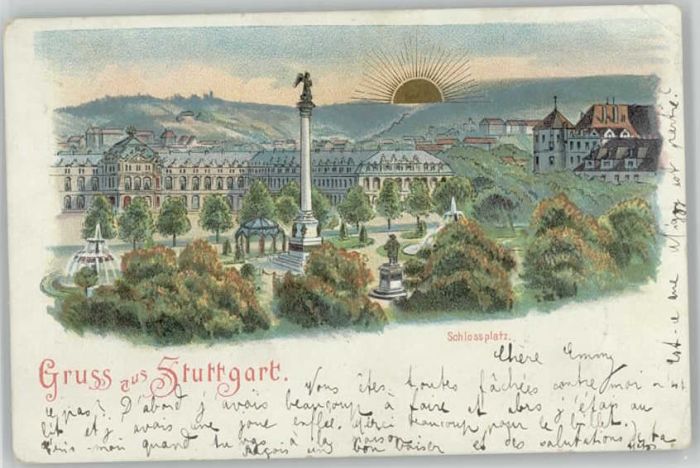 Schlossplatz.
Gruss aus Stuttgart.
Chère Emmy
Vous êtes toutes fâchées contre moi n'est
ce pas? D'abord j'avais beaucoup à faire et alors j'étais au
lit et j'avais une joue enflée. Merci beaucoup pour le billet.
moi quand tu vas à la
Reçois un bon baiser et des salutations, ta
est-ce que